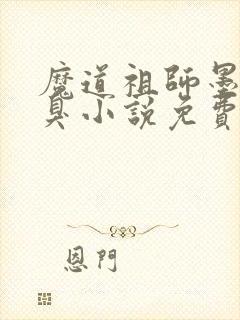 魔道祖師墨
臭小說免費
恩門